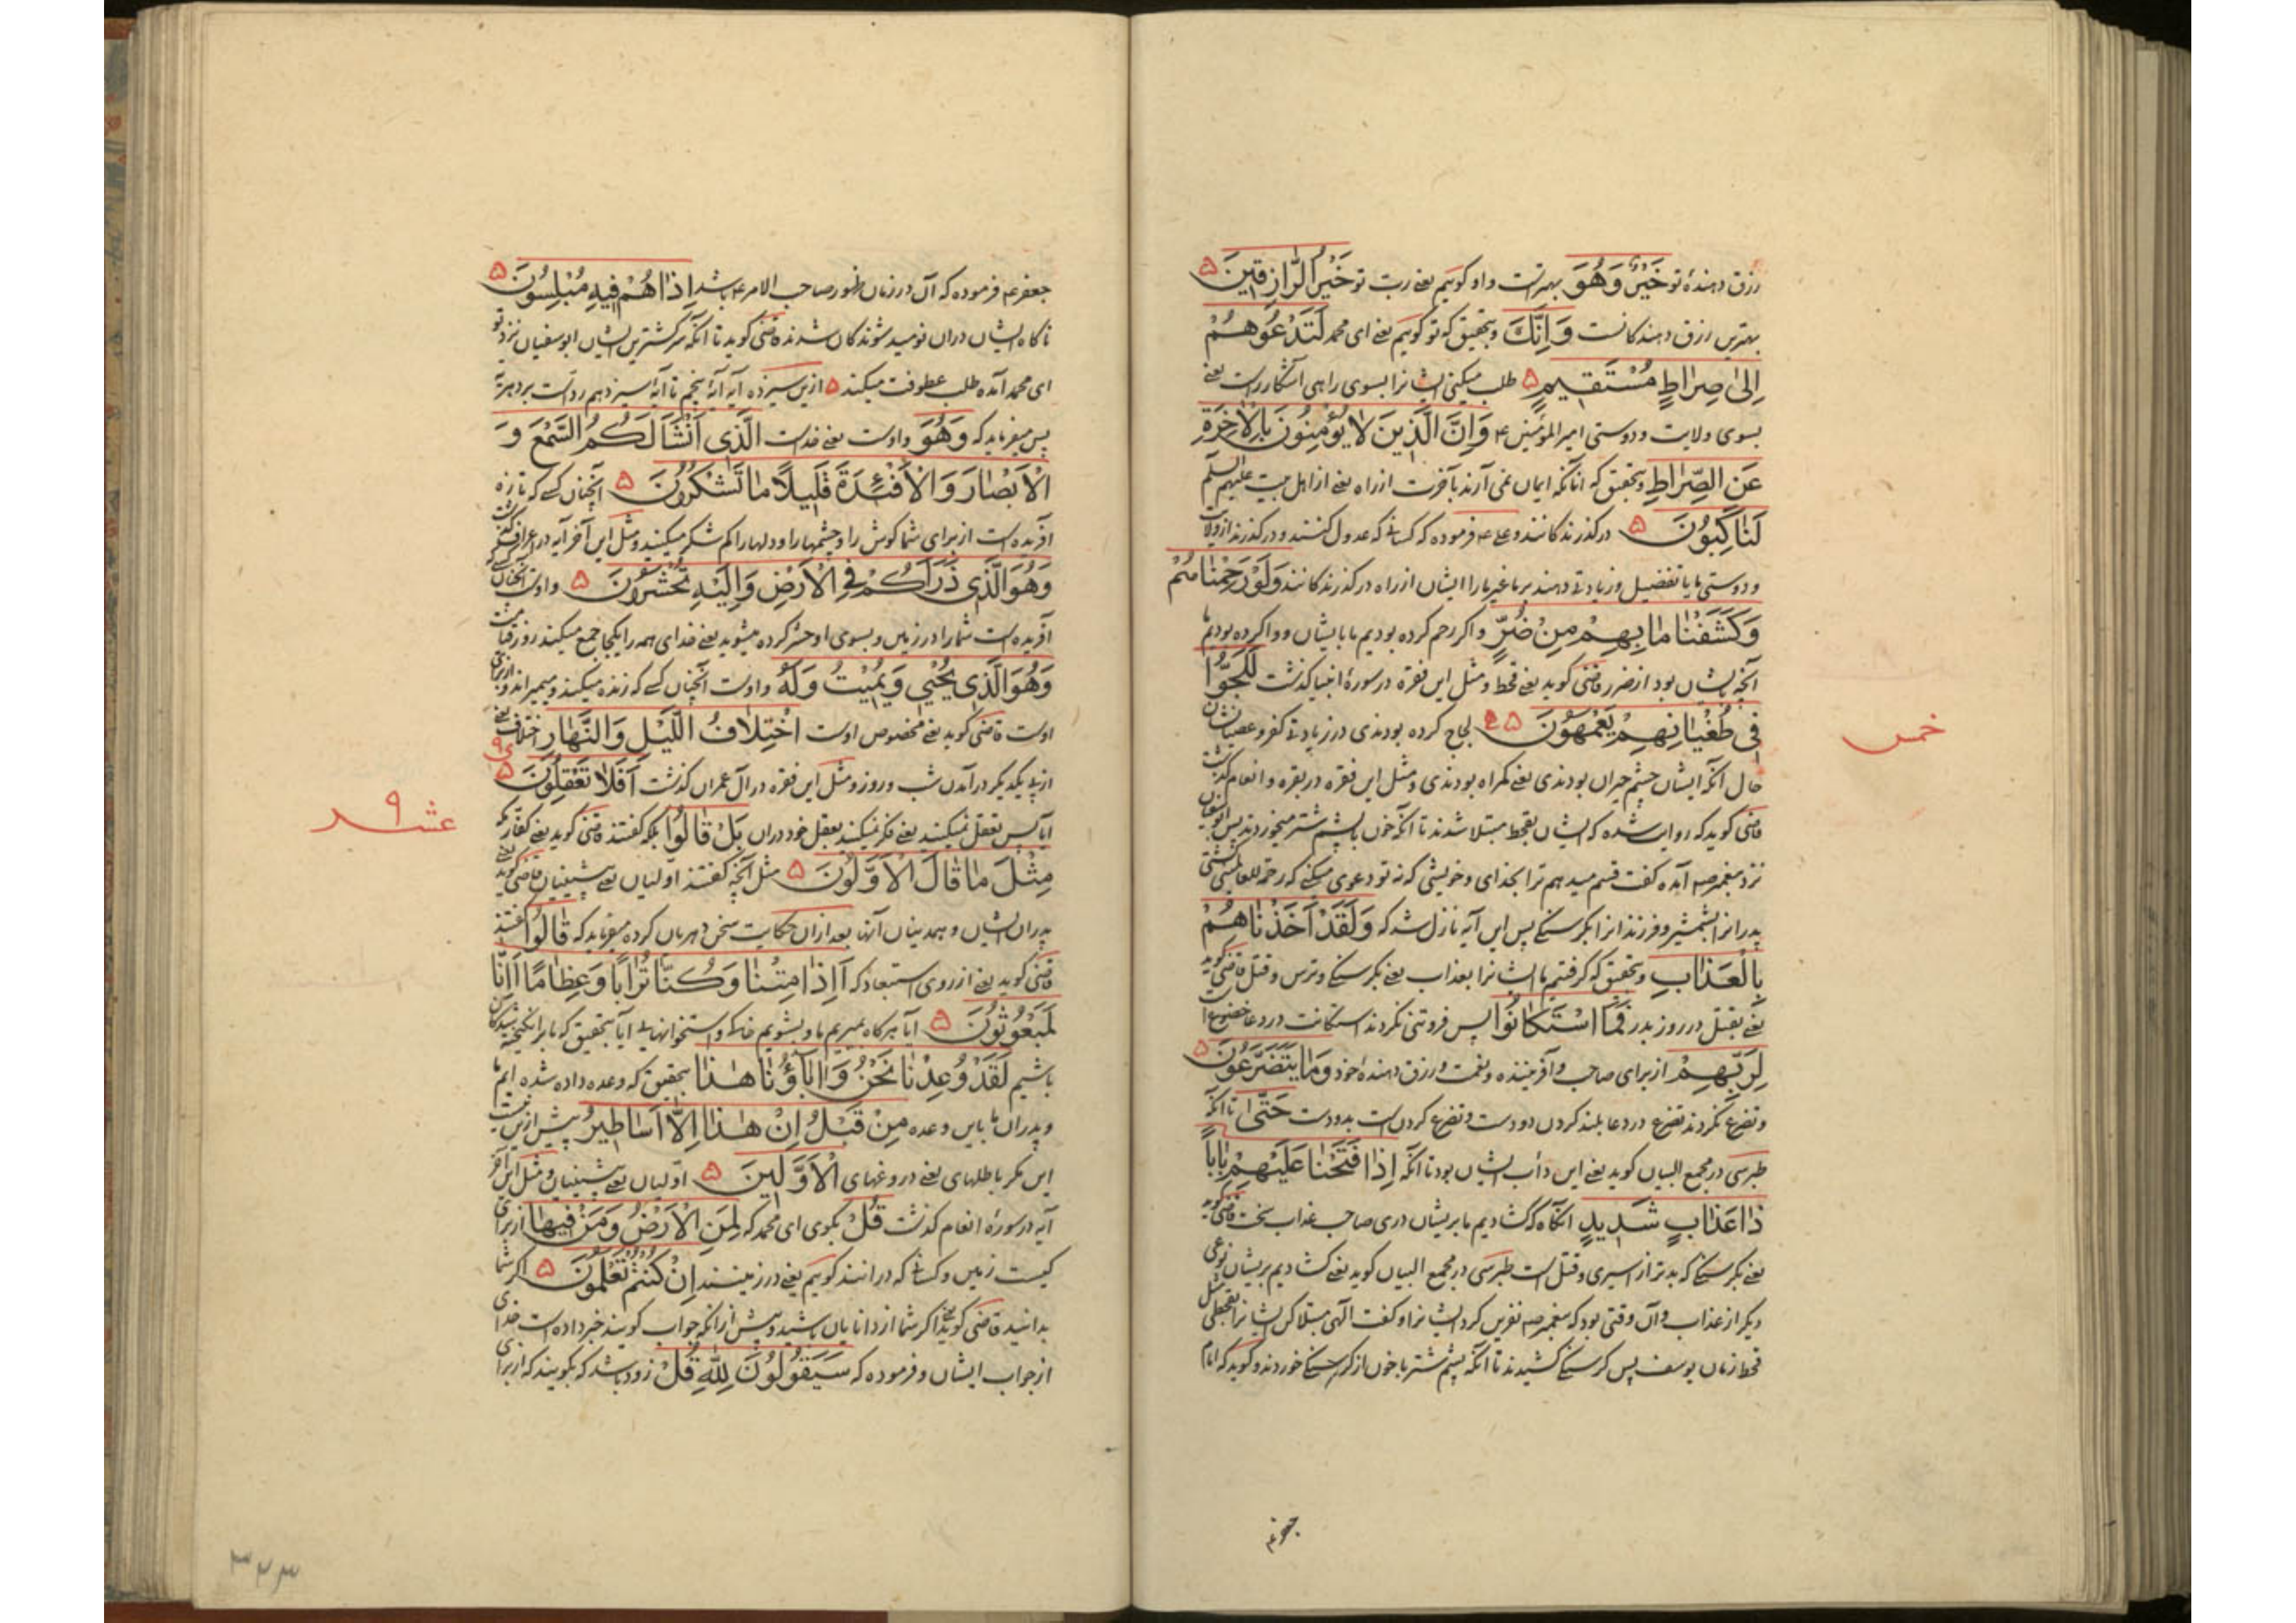 رزق دهندهٔ تو خَيْرٌ وَهُوَ بهترست و او کوییم یعنی ربّ تو خَيْرُ الرَّازِقِينَ ۵
بهترین رزق دهندکانست وَاِنَّكَ و بتحقیق که تو کوییم یعنی ای محمد لَتَدْعُوهُمْ
اِلٰى صِرَاطٍ مُسْتَقِيمٍ ۵ طلب میکنی ایشانرا بسوی راهی آشکار راست یعنی
بسوی ولایت و دوستی امیرالمؤمنین ع وَاِنَّ الَّذِينَ لَا يُؤْمِنُونَ بِالْاٰخِرَةِ
عَنِ الصِّرَاطِ و بتحقیق که آنانکه ایمان نمی آرند بآخرت از راه یعنی از اهل بیت علیهم السلم
لَنَاكِبُونَ ۵ درکذرندکانند و علی ع فرموده که کسانی که عدول کنند و درکذرند از ولایت
و دوستی ما یا تفضیل و زیادتی دهند بر ما غیر ما را ایشان از راه درکذرندکانند وَلَوْ رَحِمْنَاهُمْ
وَكَشَفْنَا مَا بِهِمْ مِنْ ضُرٍّ و اکر رحم کرده بودیم ما بایشان و وا کرده بودیم ما
آنچه بایشان بود از ضرر قاضی کوید یعنی قحط و مثل این فقره در سورهٔ انبیا کذشت لَلَجُّوا
فِى طُغْيَانِهِمْ يَعْمَهُونَ ۵ لجاج کرده بودندی در زیادتی کفر و عصیانشان
حال آنکه ایشان چشم حیران بودندی یعنی کمراه بودندی و مثل این فقره در بقره و انعام کذشت
قاضی کوید که روایت شده که ایشان بقحط مبتلا شدند تا آنکه خون با پشم شتر میخوردند پس ابوسفیان
نزد پیغمبر ص آمده کفت قسم میدهم ترا بخدای و خویشی که نه تو دعوی میکنی که رحمة للعالمینی کشتی
پدرانرا بشمشیر و فرزندانرا بکرسنکی پس این آیه نازل شد که وَلَقَدْ اَخَذْنَاهُمْ
بِالْعَذَابِ و بتحقیق که کرفتیم ما ایشانرا بعذاب یعنی بکرسنکی و ترس و قتل قاضی کوید
یعنی بقتل در روز بدر فَمَا اسْتَكَانُوا پس فروتنی نکردند استکانت در دعا خضوع است
لِرَبِّهِمْ از برای صاحب و آفریننده و نعمت و رزق دهندهٔ خود وَمَا يَتَضَرَّعُونَ ۵
و تضرع نکردند تضرع در دعا بلند کردن دو دست و تضرع کردن است بدو دست حَتّٰى تا آنکه
طبرسی در مجمع البیان کوید یعنی این دأب ایشان بود تا آنکه اِذَا فَتَحْنَا عَلَيْهِمْ بَابًا
ذَا عَذَابٍ شَدِيدٍ آنکاه که کشادیم ما بریشان دری صاحب عذاب سخت قاضی کوید
یعنی بکرسنکی که بدتر از اسیری و قتل است طبرسی در مجمع البیان کوید یعنی کشادیم بریشان نوعی
دیکر از عذاب و آن وقتی بود که پیغمبر ص نفرین کرد ایشانرا و کفت الهی مبتلا کن ایشانرا بقحطی مثل
قحط زمان یوسف پس کرسنکی کشیدند تا آنکه پشم شتر با خون از کرسنکی خوردند و کوید که امام
خمس
جعفر ع
جعفر ع فرموده که آن در زمان ظهور صاحب الامر ع باشد اِذَا هُمْ فِيهِ مُبْلِسُونَ ۵
ناکاه ایشان دران نومید شوندکان شدند قاضی کوید تا آنکه سرکشترین ایشان ابوسفیان نزد تو
ای محمد آمده طلب عطوفت میکند ۵ ازین سیزده آیه آیهٔ پنجم تا آیهٔ سیزدهم ردست بر دهریه
پس میفرماید که وَهُوَ و اوست یعنی خداست الَّذِى اَنْشَاَ لَكُمُ السَّمْعَ وَ
الْاَبْصَارَ وَالْاَفْئِدَةَ قَلِيلًا مَا تَشْكُرُونَ ۵ آنچنان کسی که تازه
آفریده است از برای شما کوش را و چشمها را و دلها را کم شکر میکنید و مثل این آخر آیه در اعراف کذشت
وَهُوَ الَّذِى ذَرَاَكُمْ فِى الْاَرْضِ وَاِلَيْهِ تُحْشَرُونَ ۵ و اوست آنچنان کسی که
آفریده است شما را در زمین و بسوی او حشر کرده میشوید یعنی خدای همه را یکجا جمع میکند روز قیامت
وَهُوَ الَّذِى يُحْيِى وَيُمِيتُ وَلَهُ و اوست آنچنان کسی که زنده میکند و میمیراند و از برای
اوست قاضی کوید یعنی مخصوص اوست اخْتِلَافُ اللَّيْلِ وَالنَّهَارِ اختلاف یعنی
از پی یکدیکر درآمدن شب و روز و مثل این فقره در آل عمران کذشت اَفَلَا تَعْقِلُونَ ۵
آیا پس تعقل نمیکنید یعنی فکر نمیکنید بعقل خود دران بَلْ قَالُوا بلکه کفتند قاضی کوید یعنی کفار مکه
مِثْلَ مَا قَالَ الْاَوَّلُونَ ۵ مثل آنچه کفتند اوّلیان یعنی پیشینیان قاضی کوید یعنی
پدران ایشان و همدینان آنها بعد ازان حکایت سخن دهریان کرده میفرماید که قَالُوا کفتند
قاضی کوید یعنی از روی استبعاد که اَاِذَا مِتْنَا وَكُنَّا تُرَابًا وَعِظَامًا اَاِنَّا
لَمَبْعُوثُونَ ۵ آیا هرکاه بمیریم ما و بشویم خاک و استخوانها یا آیا بتحقیق که ما برانکیخته شدکان
باشیم لَقَدْ وُعِدْنَا نَحْنُ وَاٰبَاؤُنَا هٰذَا بتحقیق که وعده داده شده ایم ما
و پدران ما باین وعده مِنْ قَبْلُ اِنْ هٰذَا اِلَّا اَسَاطِيرُ پیش ازین نیست
این مکر باطلهای یعنی دروغهای الْاَوَّلِينَ ۵ اوّلیان یعنی پیشینیان و مثل این آخر
آیه در سورهٔ انعام کذشت قُلْ بکوی ای محمد که لِمَنِ الْاَرْضُ وَمَنْ فِيهَا از برای
کیست زمین و کسانی که درانند کوییم یعنی در زمینند اِنْ كُنْتُمْ تَعْلَمُونَ ۵ اکر شما
بدانید قاضی کوید یعنی اکر شما از دانایان باشید و پیش ازانکه جواب کویند خبر داده است خدای
از جواب ایشان و فرموده که سَيَقُولُونَ لِلّٰهِ قُلْ زود باشد که بکویند که از برای
عشر ۹
۳۴۳